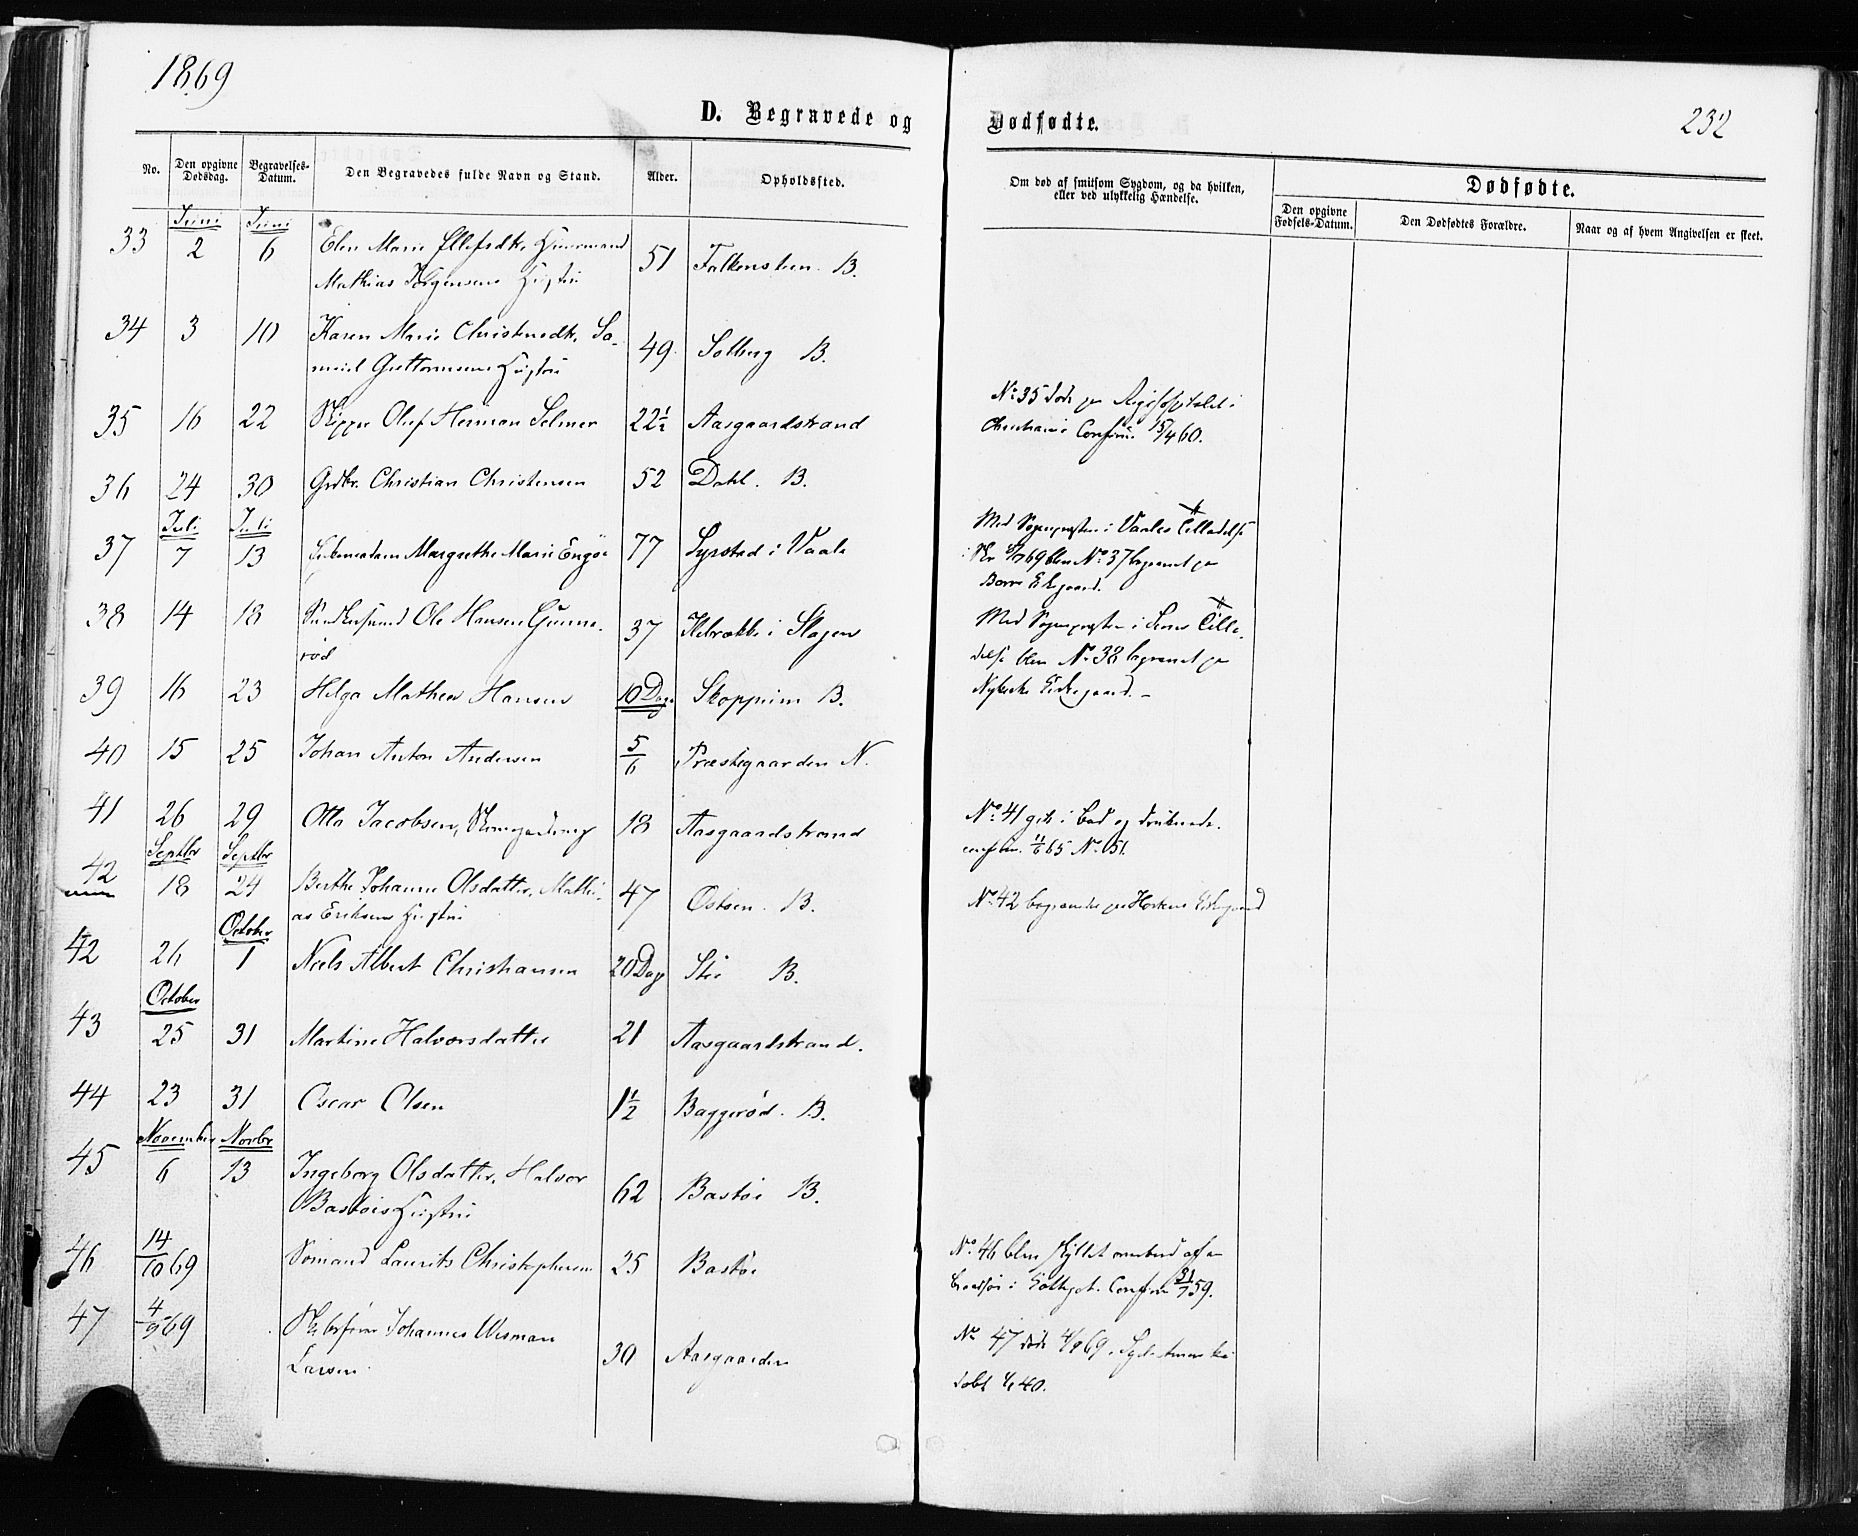 1869
D. Begravede og
Dødfødte.
232
No.
Den opgivne Dødsdag.
Begravelses-Datum.
Den Begravedes fulde Navn og Stand.
Alder.
Opholdssted.
Om død af smitsom Sygdom, og da hvilken,
eller ved ulykkelig Hændelse.
Dødfødte.
Den opgivne Fødsels-Datum.
Den Dødfødtes Forældre.
Naar og af hvem Angivelsen er skeet.
Juni Juni
33 2 6 Elen Marie Ellefsdtr, Huusmand
Mathias Jørgensens Hustru 51 Falkensten. B.
34 3 10 Karen Marie Christensdtr, Sa-
muel Guttormsens Hustru 49 Solberg B.
35 16 22 Skipper Oluf Herman Selmer 22½ Aasgaardstrand
No 35 døde paa Rigshospitalet i
Christiania Confirm 15/4 60.
36 24 30 Grdbr. Christian Christensen 52 Dahl. B.
Juli Juli
37 7 13 Margrethe Marie Engøe 77 Syrstad i Vaale
Med Sognepræsten i Vaales Tilladelse
69 blev No 37 begravet paa
Borre Kirkegaard.
38 14 18 Ole Hansen Gunne-
rød 37 i Slagen
Med Sognepræsten i Sems Tilla-
delse blev No 38 begravet paa
Nykirke Kirkegaard. -
39 16 23 Helga Mathea Hansen 10 Dage Skoppum B.
40 15 25 Johan Anton Andersen 5/6 Præstegaarden N.
41 26 29 Otto Jacobsen, 18 Aasgaardstrand
No 41 gik i Bad og druknede.
confirm. 65 No 51.
Septbr Septbr
42 18 24 Berthe Johanne Olsdatter, Mathi-
as Eriksens Hustru 47 Østøen. B.
No 42 begravedes paa Hortens Kirkegaard
October
42 26 1 Niels Albert Christiansen 20 Dage B.
October
43 25 31 Martine Halvorsdatter 21 Aasgaardstrand.
44 23 31 Oscar Olsen 1½ Baggerød. B.
November Novbr
45 6 13 Ingeborg Olsdatter, Halvor
Bastøes Hustru 62 Bastøe B.
46 14/10 69 Sømand Laurits Christophersen 25 Bastøe
No 46 blev skyllet overbord af en
Braadsø i Kattegat. Confirm 59.
47 4/9 69 Johannes Wisman
Larsen. 30 Aasgaarden
No 47 døde 4/9 69.
døbt 40.